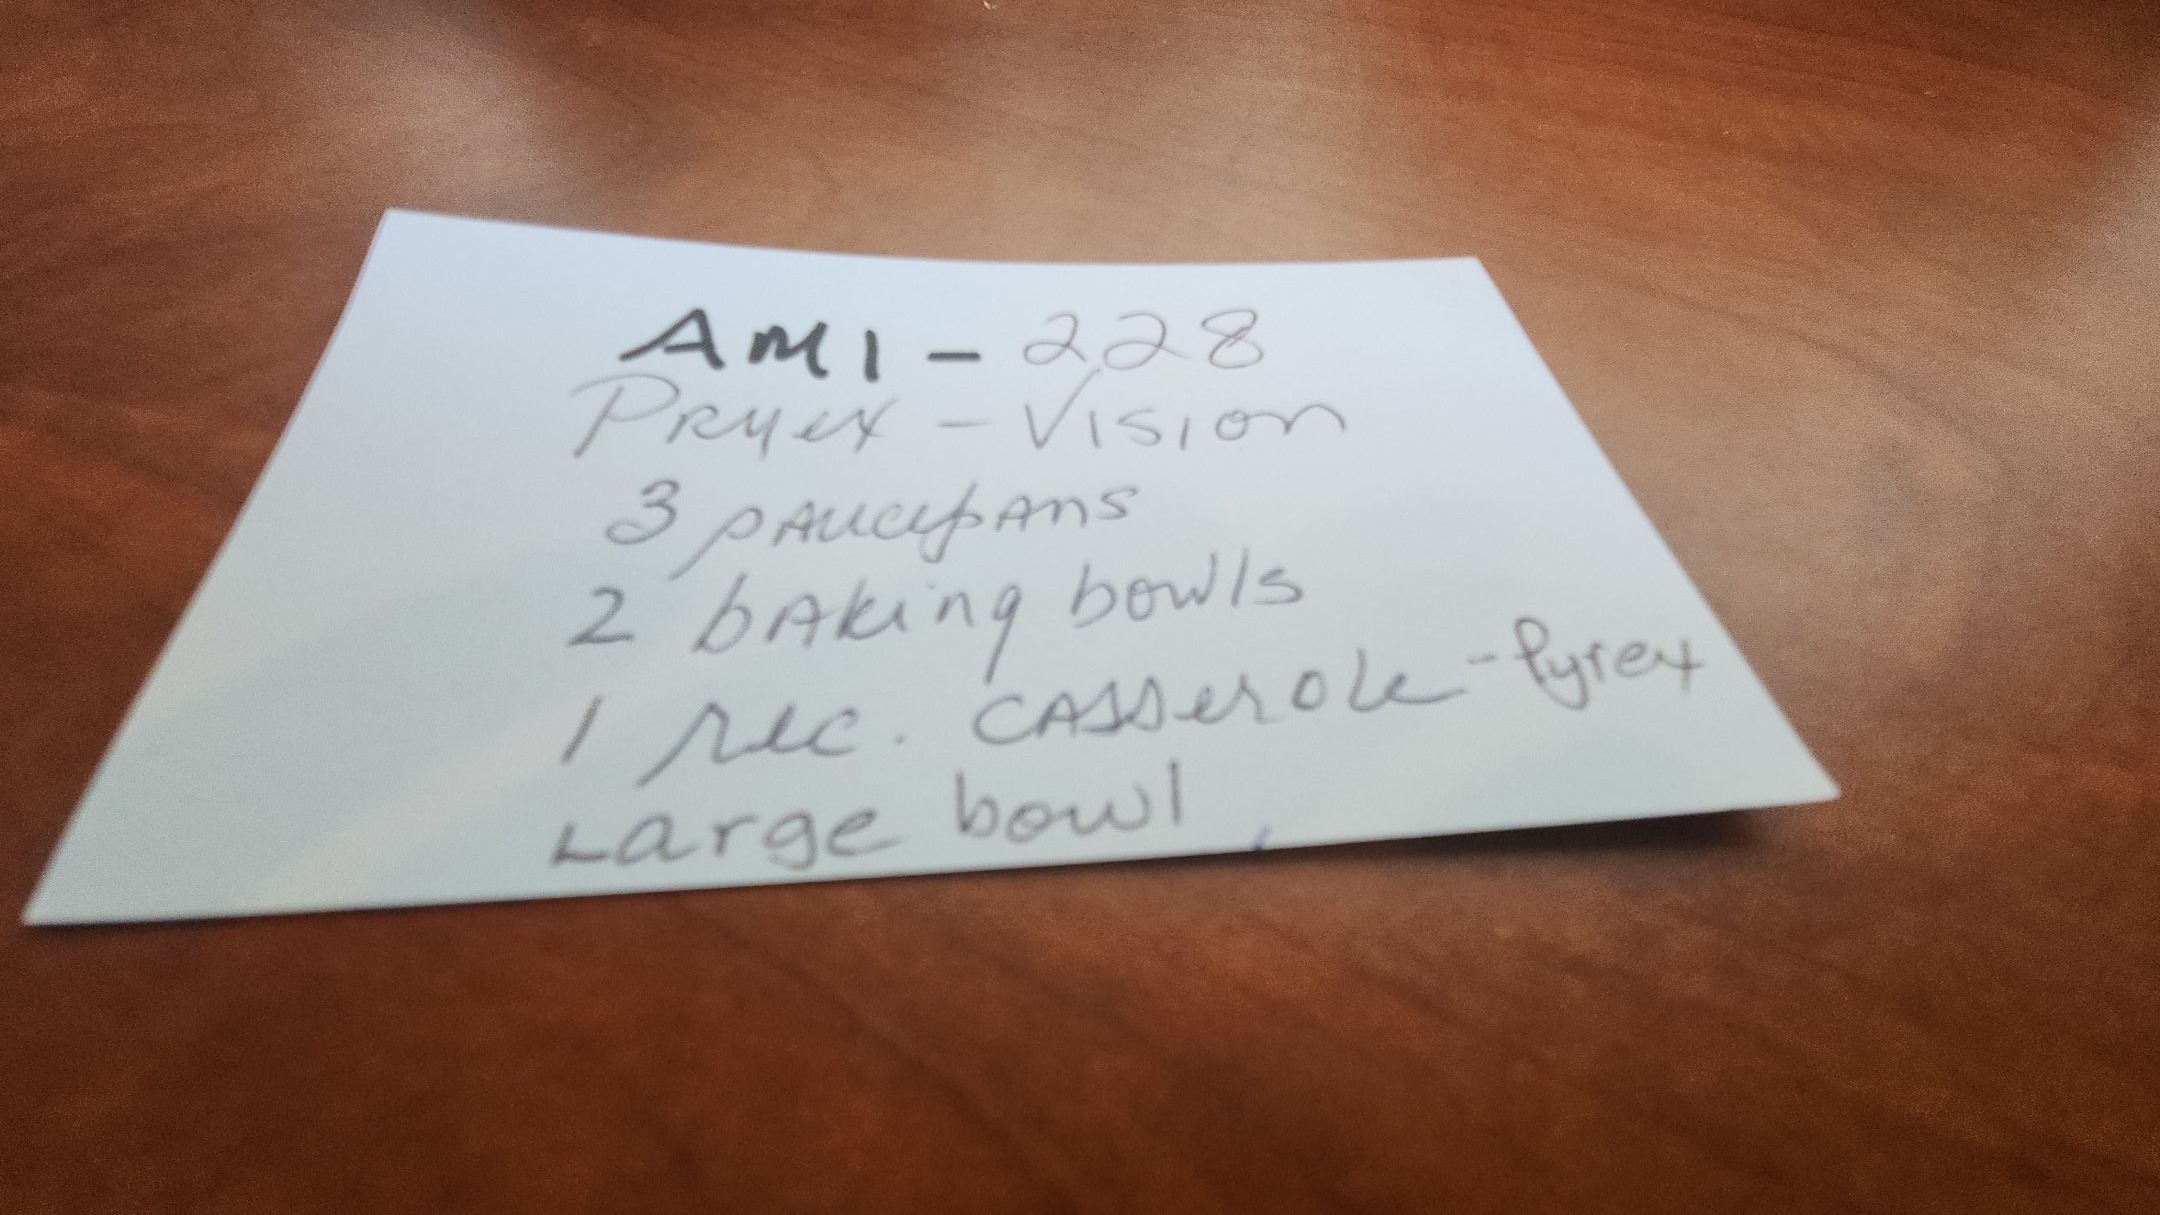 AMI - 228
Pryex - Vision
3 saucepans
2 baking bowls
1 rec. casserole - Pyrex
Large bowl